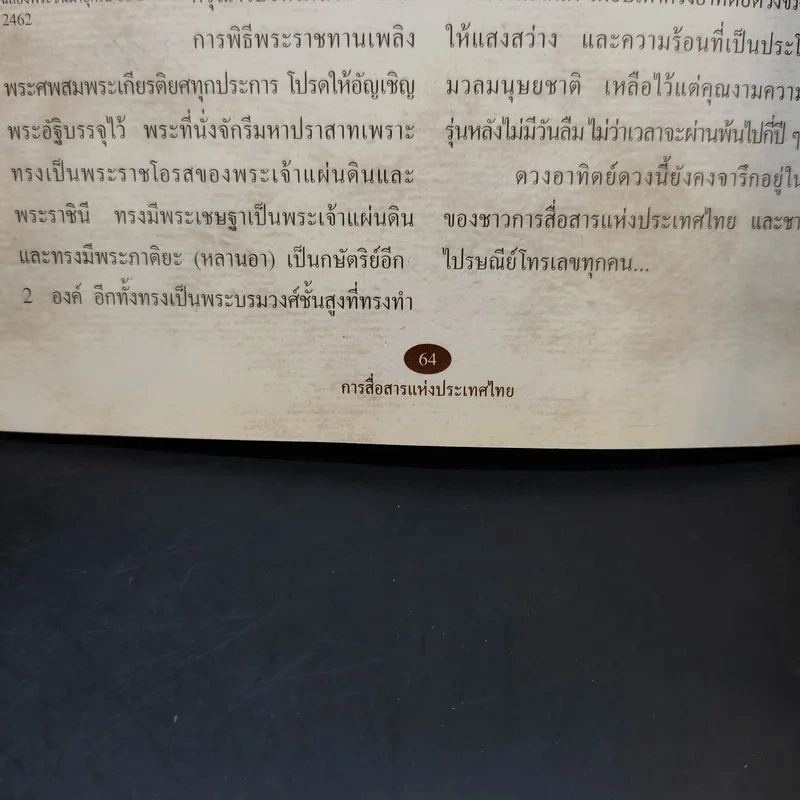 2462
การพิธีพระราชทานเพลิง
พระศพสมพระเกียรติยศทุกประการ โปรดให้อัญเชิญ
พระอัฐิบรรจุไว้ พระที่นั่งจักรีมหาปราสาทเพราะ
ทรงเป็นพระราชโอรสของพระเจ้าแผ่นดินและ
พระราชินี ทรงมีพระเชษฐาเป็นพระเจ้าแผ่นดิน
และทรงมีพระภาติยะ (หลานอา) เป็นกษัตริย์อีก
2 องค์ อีกทั้งทรงเป็นพระบรมวงศ์ชั้นสูงที่ทรงทำ
ให้แสงสว่าง และความร้อนที่เป็นประโ
มวลมนุษยชาติ เหลือไว้แต่คุณงามความ
รุ่นหลังไม่มีวันลืม ไม่ว่าเวลาจะผ่านพ้นไปกี่ปี ๆ
ดวงอาทิตย์ดวงนี้ยังคงจารึกอยู่ใน
ของชาวการสื่อสารแห่งประเทศไทย และชา
ไปรษณีย์โทรเลขทุกคน...
64
การสื่อสารแห่งประเทศไทย